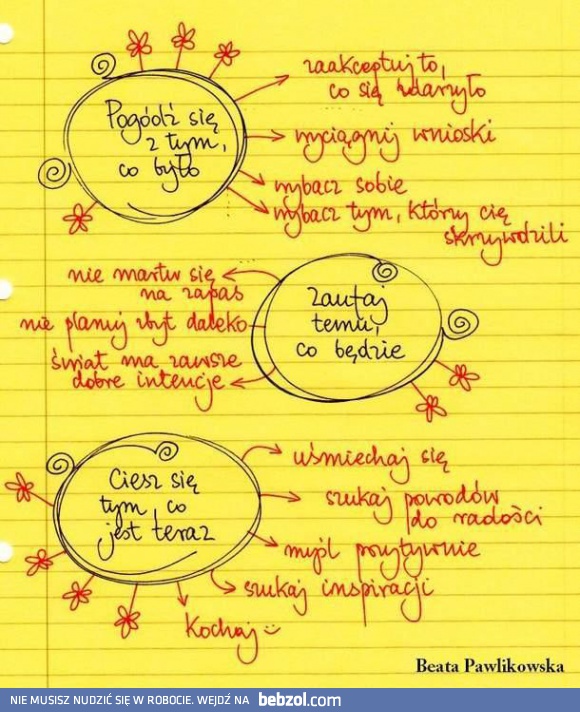 Pogódź się
z tym,
co było
zaakceptuj to,
co się zdarzyło
wyciągnij wnioski
wybacz sobie
wybacz tym, którzy cię
skrzywdzili
Zaufaj
temu,
co będzie
nie martw się
na zapas
nie planuj zbyt daleko
świat ma zawsze
dobre intencje
Ciesz się
tym, co
jest teraz
uśmiechaj się
szukaj powodów
do radości
myśl pozytywnie
szukaj inspiracji
Kochaj
Beata Pawlikowska
NIE MUSISZ NUDZIĆ SIĘ W ROBOCIE. WEJDŹ NA bebzol.com